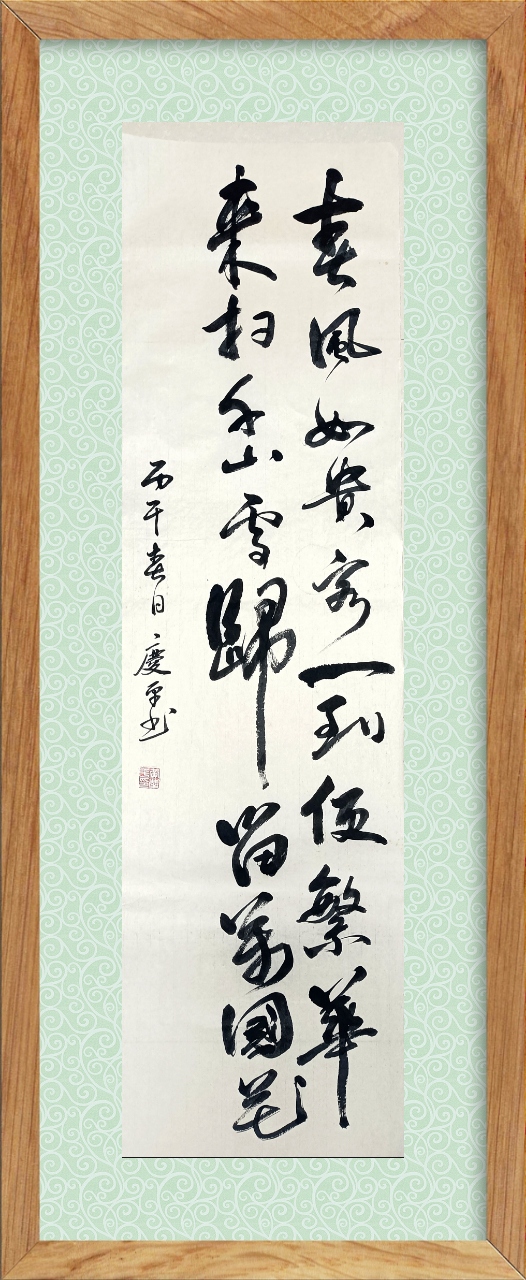 春風如貴客一到便繁華
來扫千山雪歸留萬國花
丙午春日慶平书